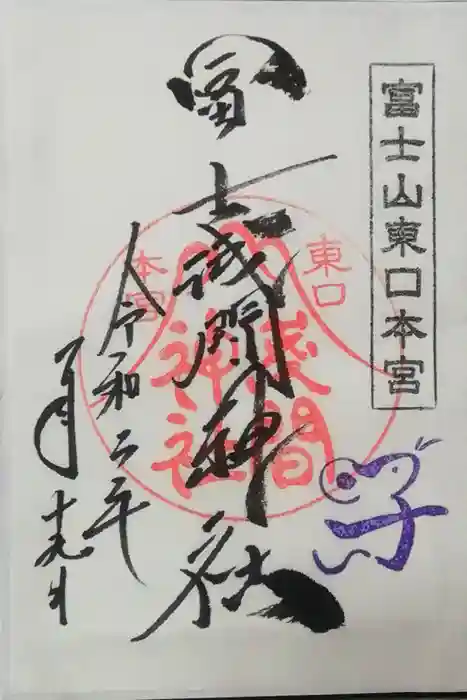 富士山東口本宮
冨士浅間神社
令和二年
一月十九日
東口
本宮
淺間
神社
子